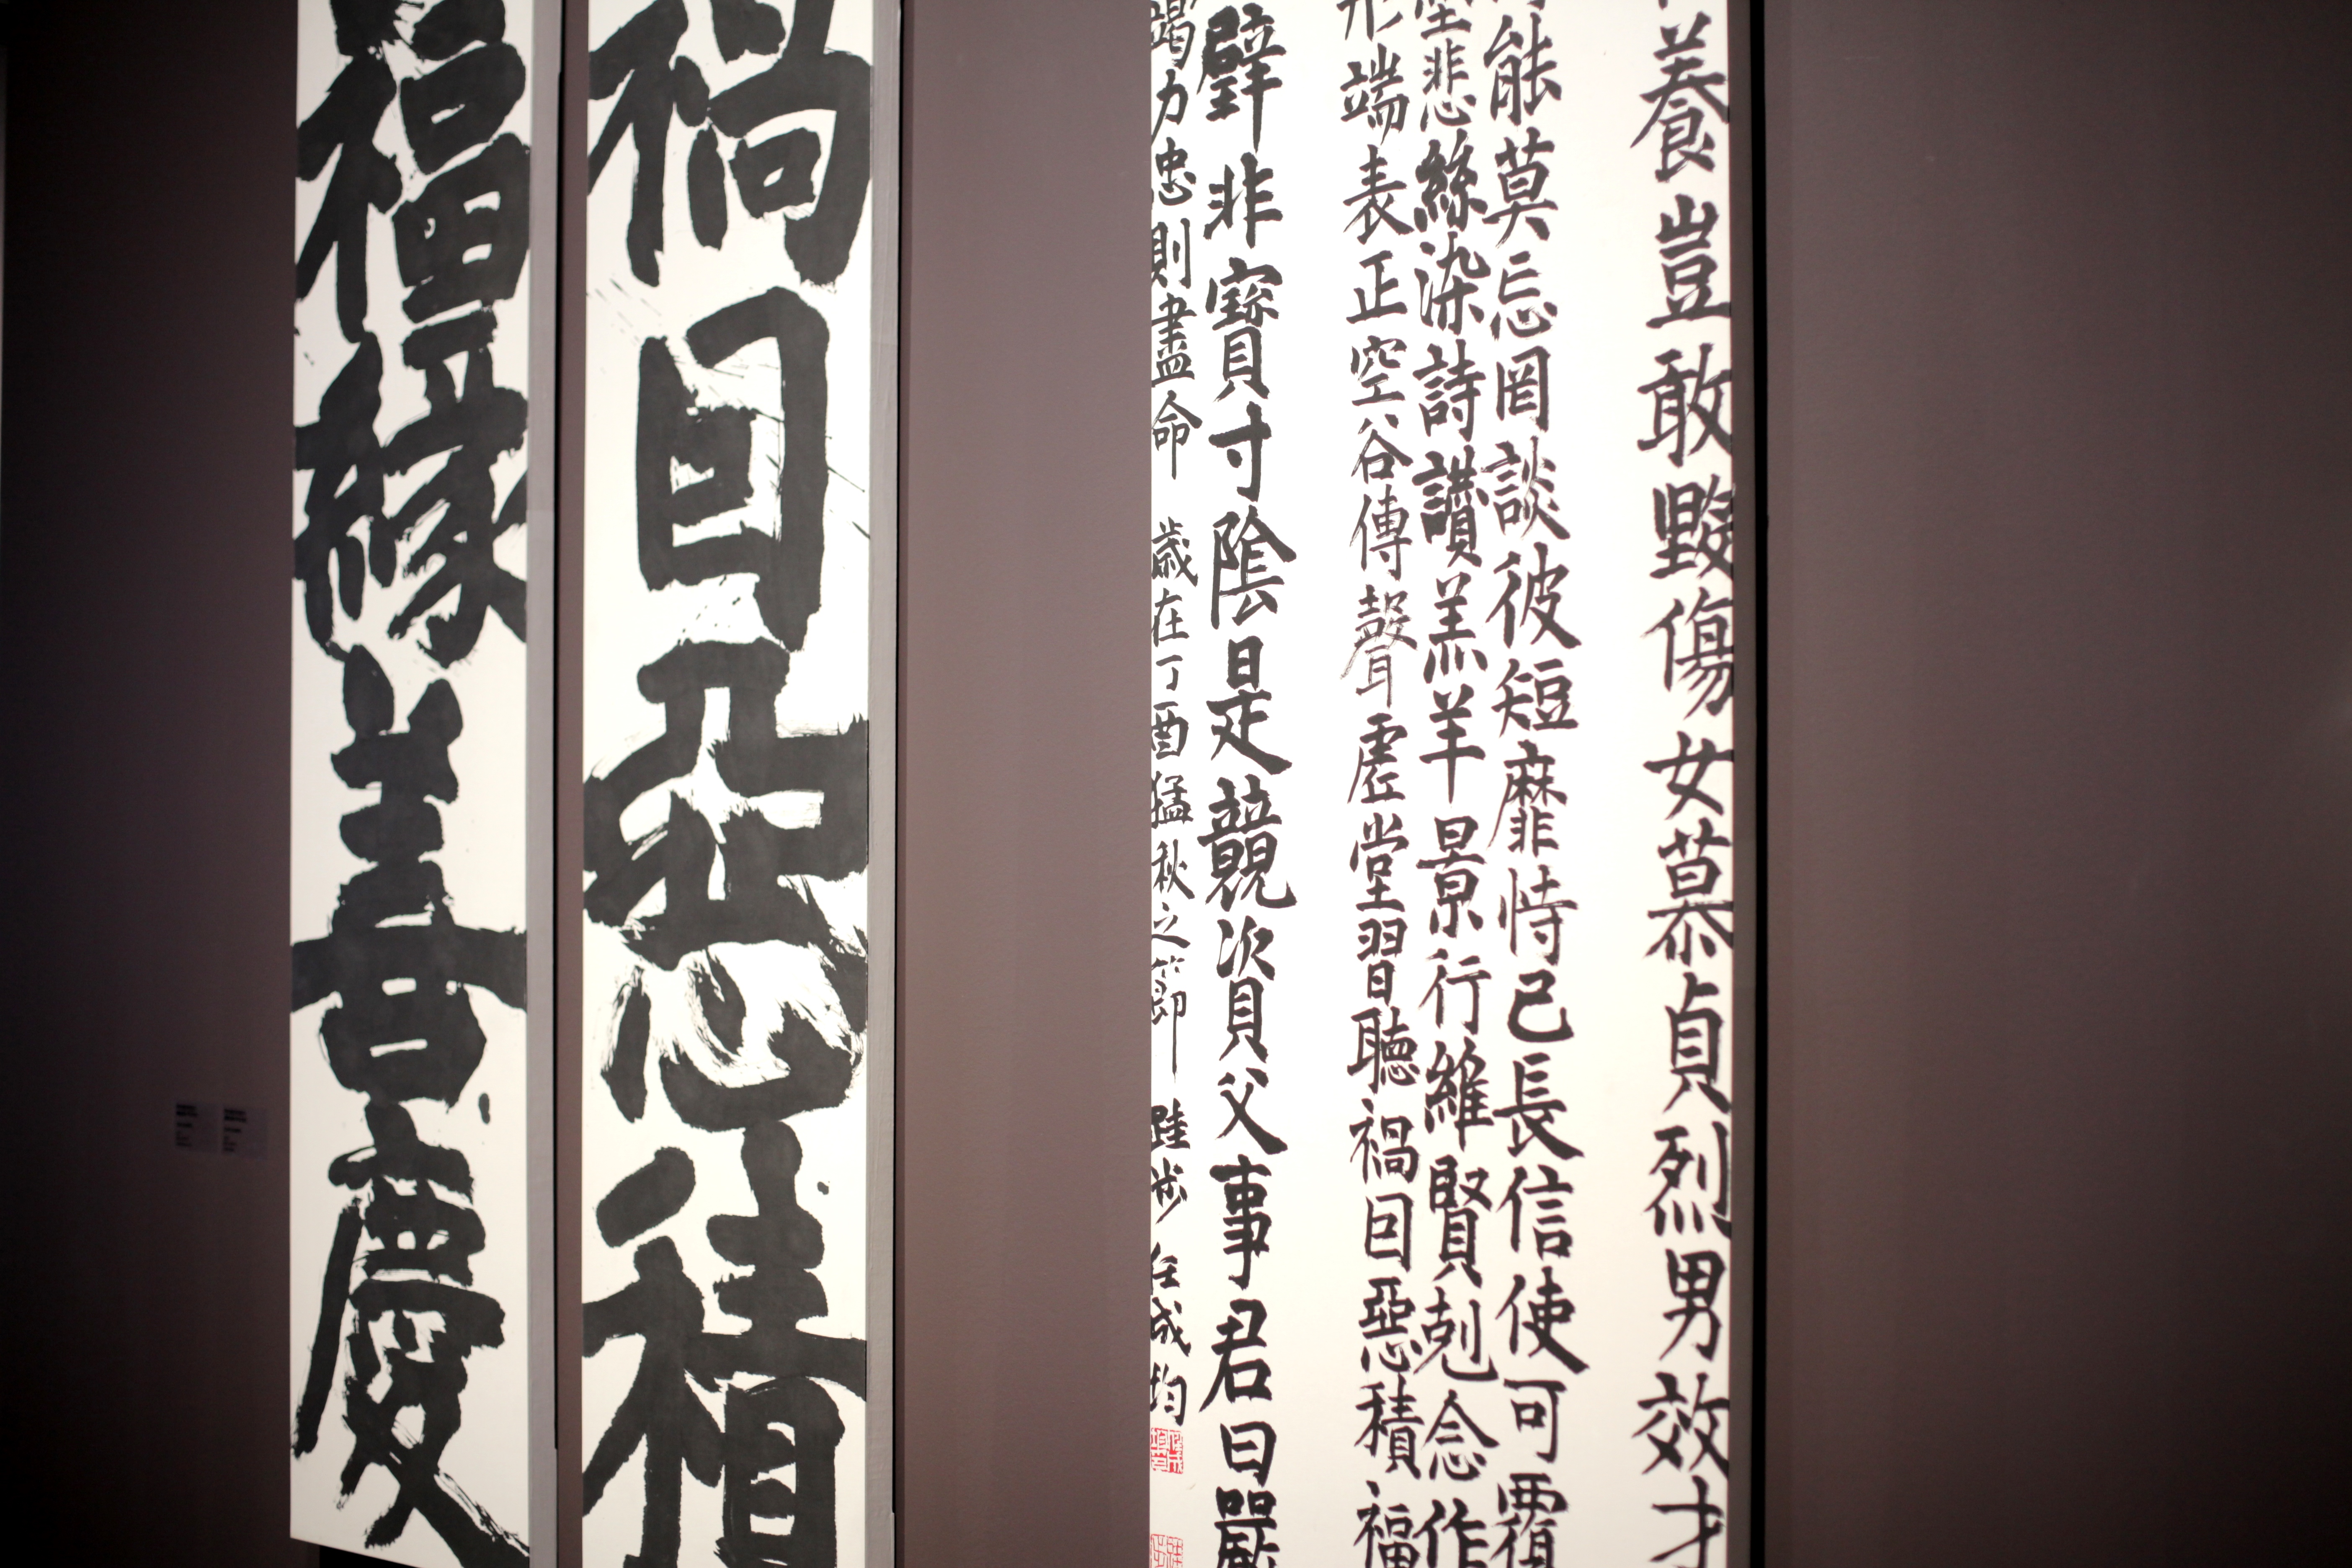 養豈敢毀傷女慕貞烈男效才
能莫忘罔談彼短靡恃己長信使可覆
墨悲絲染詩讚羔羊景行維賢剋念作
形端表正空谷傳聲虛堂習聽禍因惡積福
璧非寶寸陰是競資父事君曰嚴
竭力忠則盡命 歲在丁酉猛秋之節 任成均
禍因惡積
福緣善慶